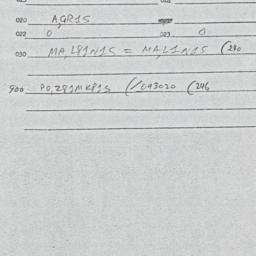 020 AGR15
022 0 023 0
030 MA,L81N15 = MAL1N15 (240
900 PO,Z81MK815 (/043020 (246